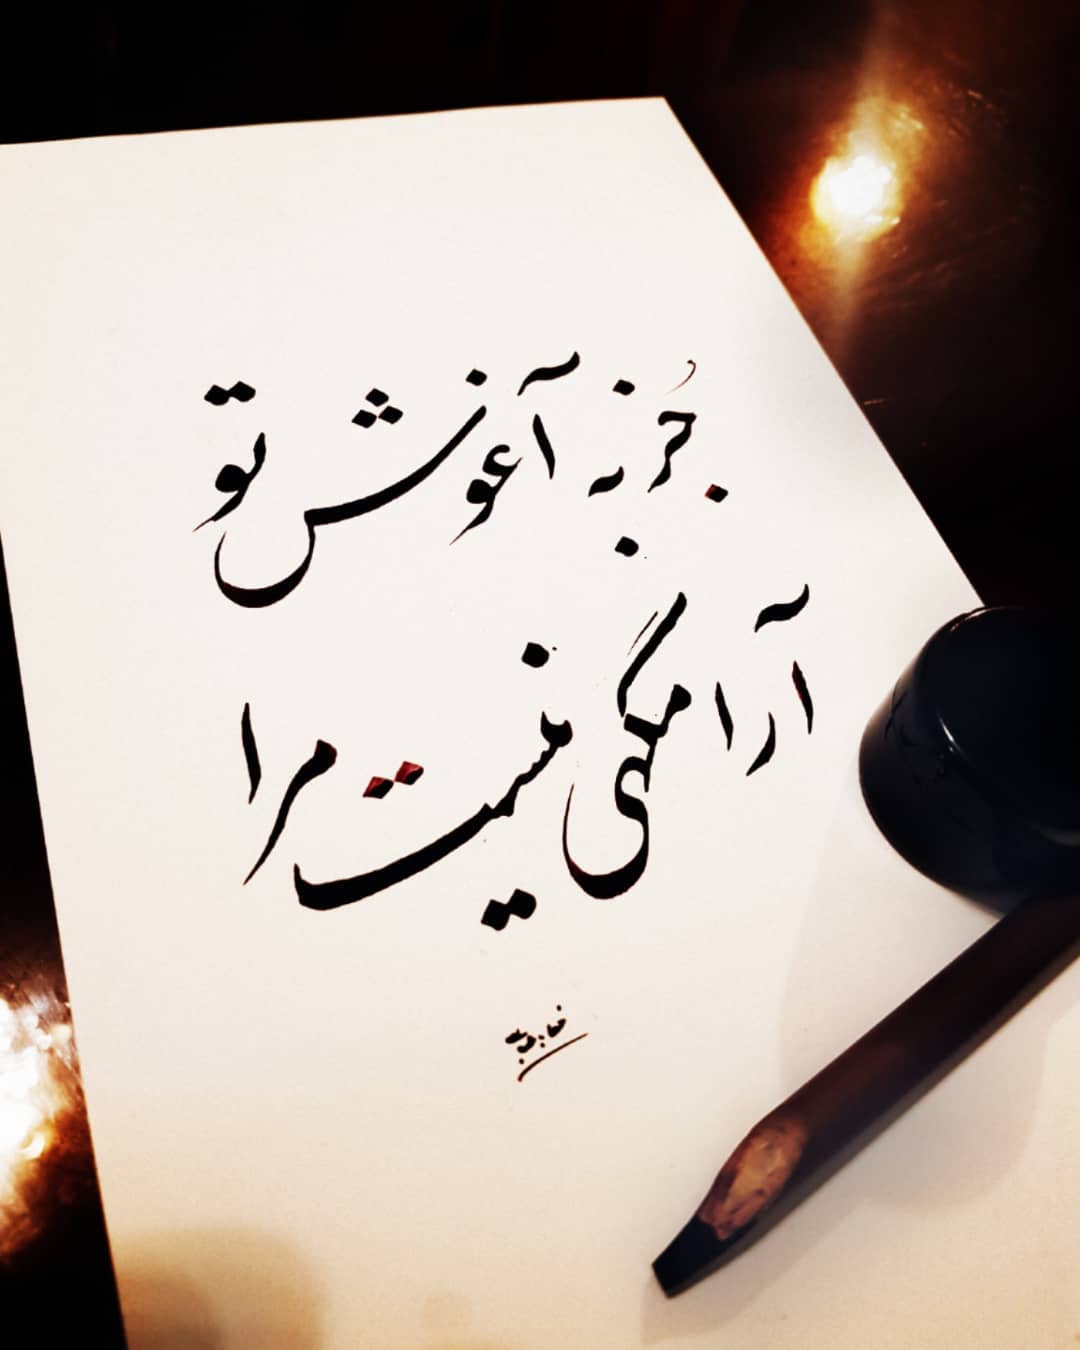 جُز به آغوش تو
آرامگهی نیست مرا